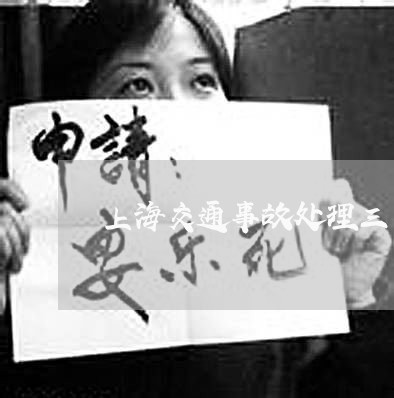 申請：
上海交通事故处理三
要乐死